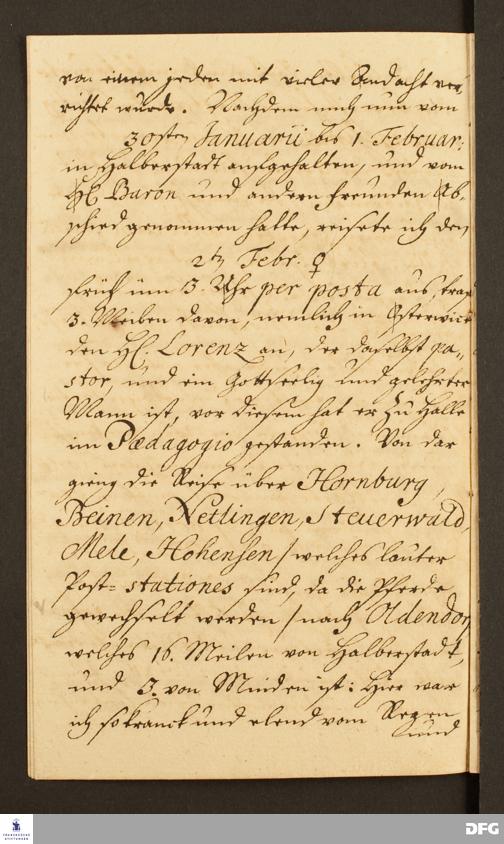 von einem jeden mit vieler Andacht ver-
richtet wurde. Nachdem mich nun vom
30sten Januarii bis 1. Februar:
in Halberstadt aufgehalten, und vom
H. Baron und andern freunden Ab-
schied genommen hatte, reisete ich den
2ten Febr. ♀
früh üm 3. Uhr per posta aus, traf
3. Meilen davon, nemlich in Osterwick
den H. Lorenz an, der daselbst Pa-
stor, und ein Gottseelig und gelehrter
Mann ist, vor diesem hat er zu Halle
im Pædagogio gestanden. Von dar
gieng die Reise über Hornburg,
Beinen, Netlingen, Steuerwald,
Mele, Hohensen / welches lauter
Post-stationes sind, da die Pferde
gewechselt werden / nach Oldendorf
welches 16. Meilen von Halberstadt,
und 3. von Minden ist: Hier war
ich so kranck und elend vom Regen
und
FRANCKESCHE
STIFTUNGEN
DFG